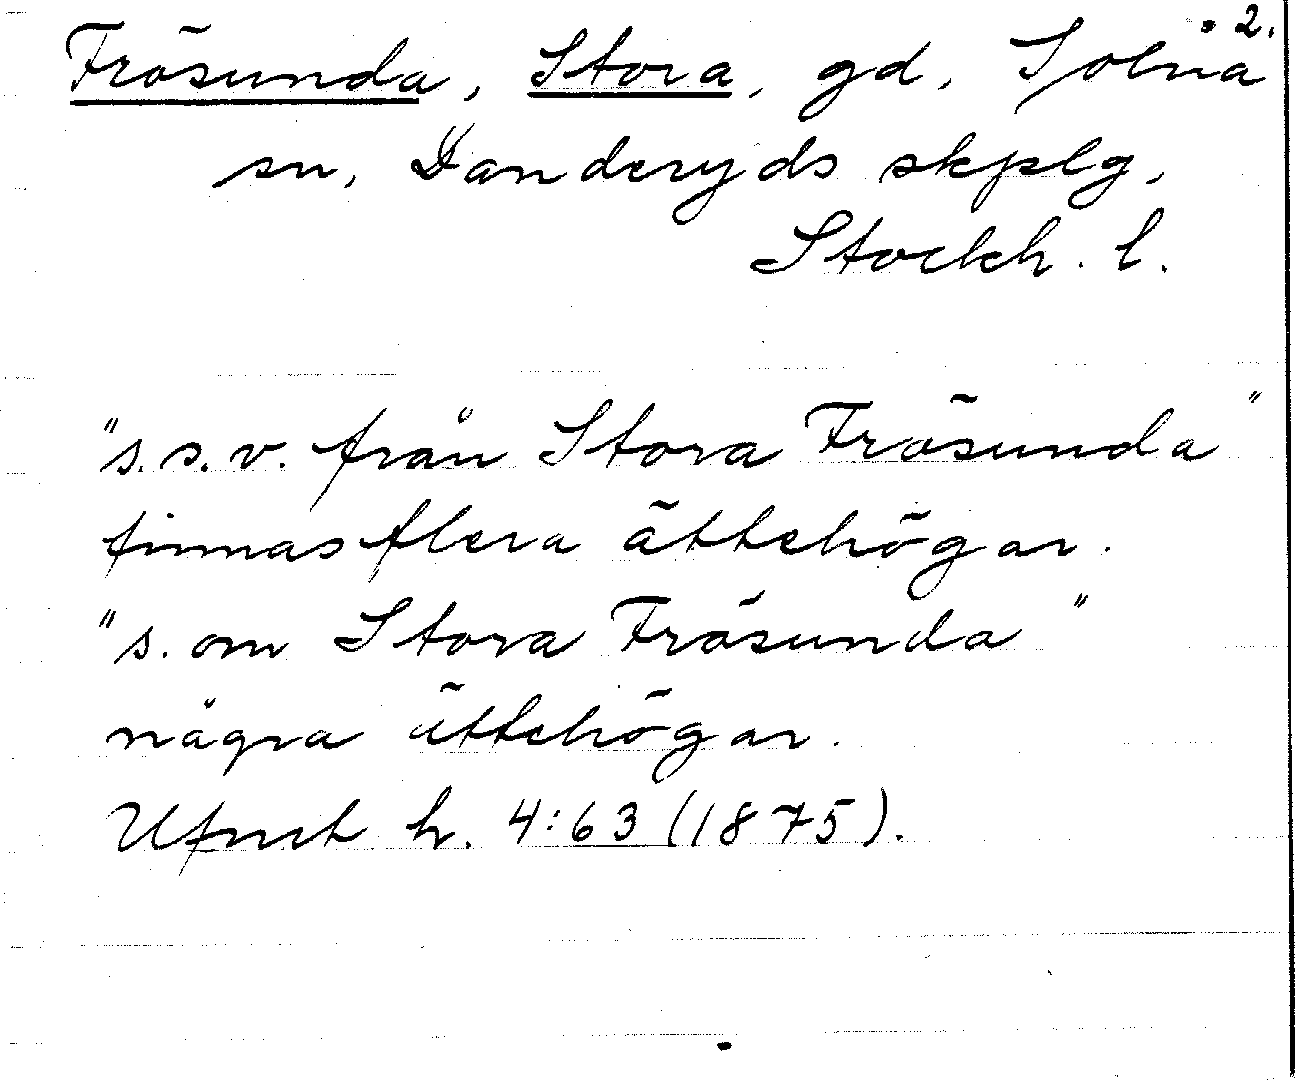 2.
Frösunda, Stora, gd, Solna
sn, Danderyds skplg,
Stockh. l.
"s.s.v. från Stora Frösunda"
finnas flera ättehögar.
"s. om Stora Frösunda"
några ättehögar.
Ufmt h. 4:63 (1875).